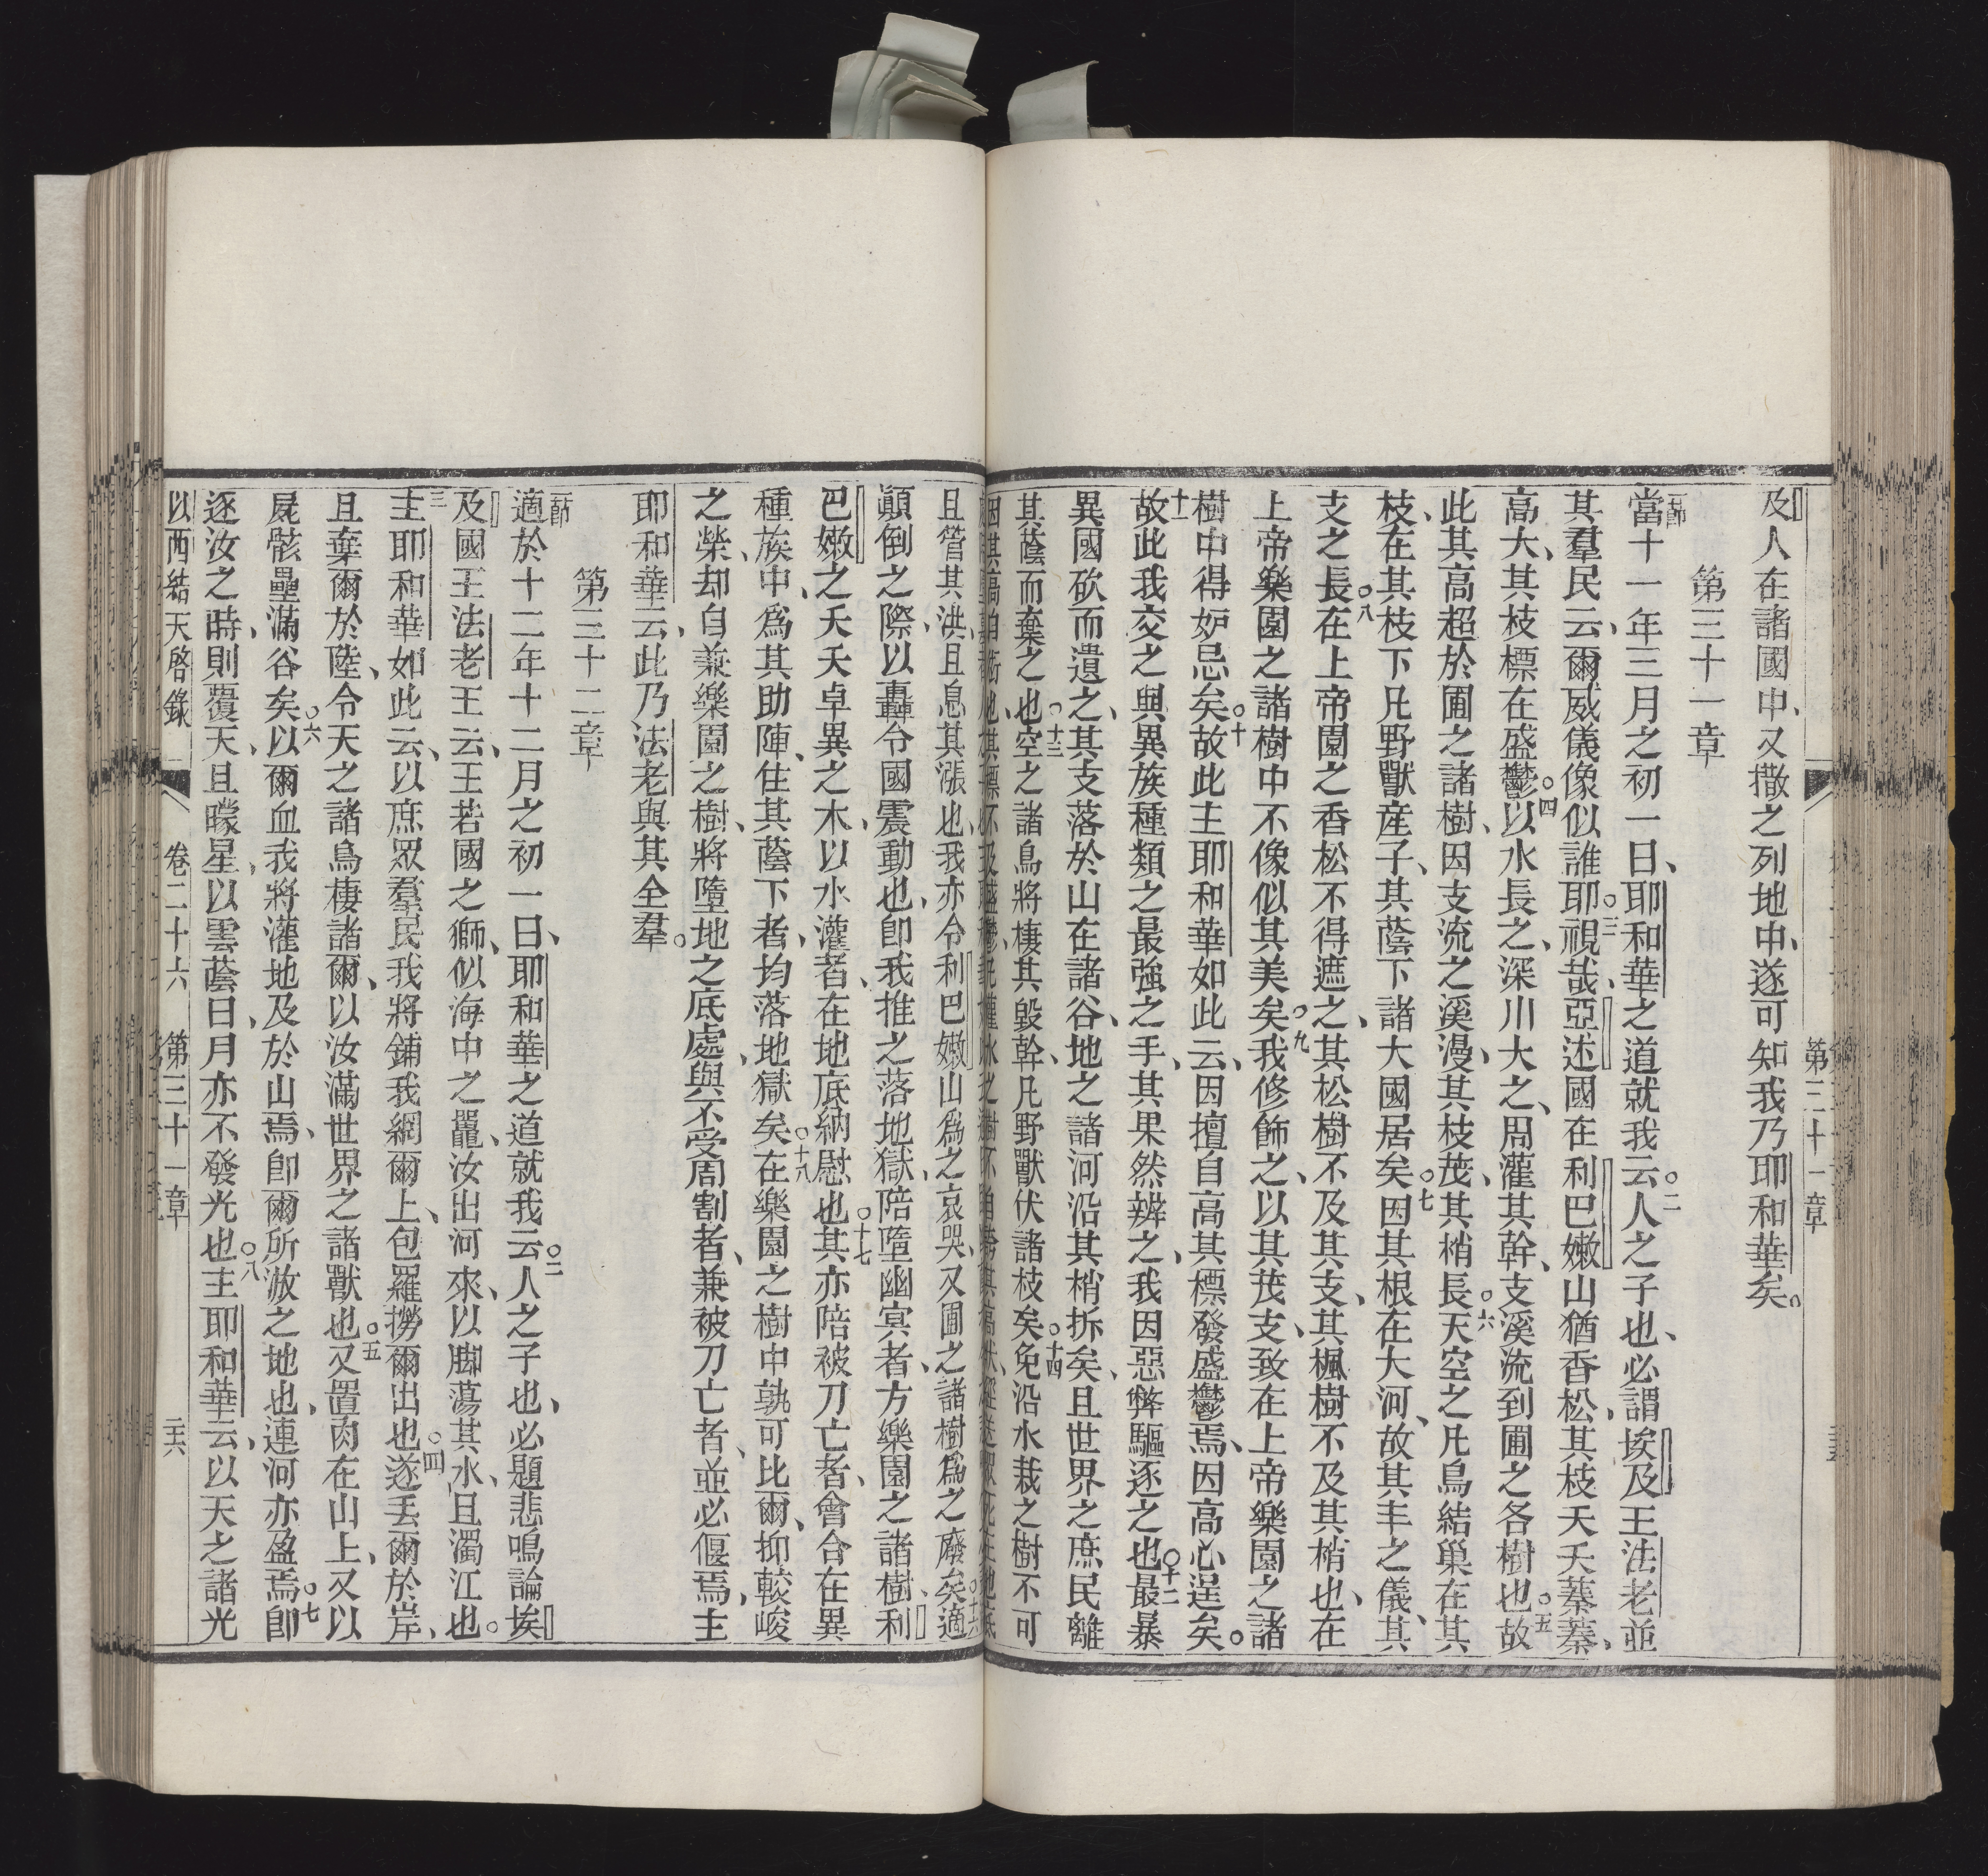 第三十一章
及人在諸國中、又撒之列地中、遂可知我乃耶和華矣。
第三十一章
一節
當十一年三月之初一日、耶和華之道就我云。
二
人之子也、必謂埃及王法老並
其羣民云、爾威儀像似誰耶。
三
視哉、亞述國在利巴嫩山猶香松、其枝夭夭蓁蓁、
高大、其枝標在盛鬱。
四
以水長之、深川大之、周灌其幹、支溪流到圃之各樹也。
五
故
此其高超於圃之諸樹、因支流之溪漫、其枝茂、其梢長。
六
天空之凡鳥結巢在其
枝、在其枝下凡野獸產子、其蔭下諸大國居矣。
七
因其根在大河、故其丰之儀、其
支之長。
八
在上帝園之香松不得遮之、其松樹不及其支、其楓樹不及其梢也、在
上帝樂園之諸樹中不像似其美矣。
九
我修飾之、以其茂支、致在上帝樂園之諸
樹中得妒忌矣。
十
故此主耶和華如此云、因擅自高其標發盛鬱焉、因高心逞矣。
十一
故此我交之與異族種類之最強之手、其果然辦之、我因惡弊驅逐之也。
十二
最暴
異國砍而遺之、其支落於山在諸谷、地之諸河沿其梢拆矣、且世界之庶民離
其蔭而棄之也。
十三
空之諸鳥將棲其毀幹、凡野獸伏諸枝矣。
十四
免沿水栽之樹不可
且管其洪、且息其漲也、我亦令利巴嫩山爲之哀哭、又圃之諸樹爲之廢矣。
十六
適
顚倒之際、以轟令國震動也、卽我推之落地獄、陪墮幽冥者、方樂園之諸樹、利
巴嫩之夭夭卓異之木、以水灌者、在地底納慰也。
十七
其亦陪被刀亡者、會合在異
種族中、爲其助陣、住其蔭下者、均落地獄矣。
十八
在樂園之樹中孰可比爾、抑較峻
之榮、却自兼樂園之樹、將墮地之底處、與不受周割者、兼被刀亡者、並必偃焉、主
耶和華云、此乃法老與其全羣。
第三十二章
一節
適於十二年十二月之初一日、耶和華之道就我云。
二
人之子也、必題悲鳴論埃
及國王法老王云、王若國之獅、似海中之鼉、汝出河來、以脚蕩其水、且濁江也。
三
主耶和華如此云、以庶眾羣民我將鋪我網爾上、包羅撈爾出也。
四
遂丟爾於岸、
且棄爾於陸、令天之諸鳥棲諸爾、以汝滿世界之諸獸也。
五
又置肉在山上、又以
屍骸壘滿谷矣。
六
以爾血我將灌地及於山焉、卽爾所游之地也、連河亦盈焉。
七
卽
逐汝之時、則覆天、且矇星、以雲蔭日、月亦不發光也。
八
主耶和華云、以天之諸光
以西結天啓錄 卷二十六 第三十一章 三六